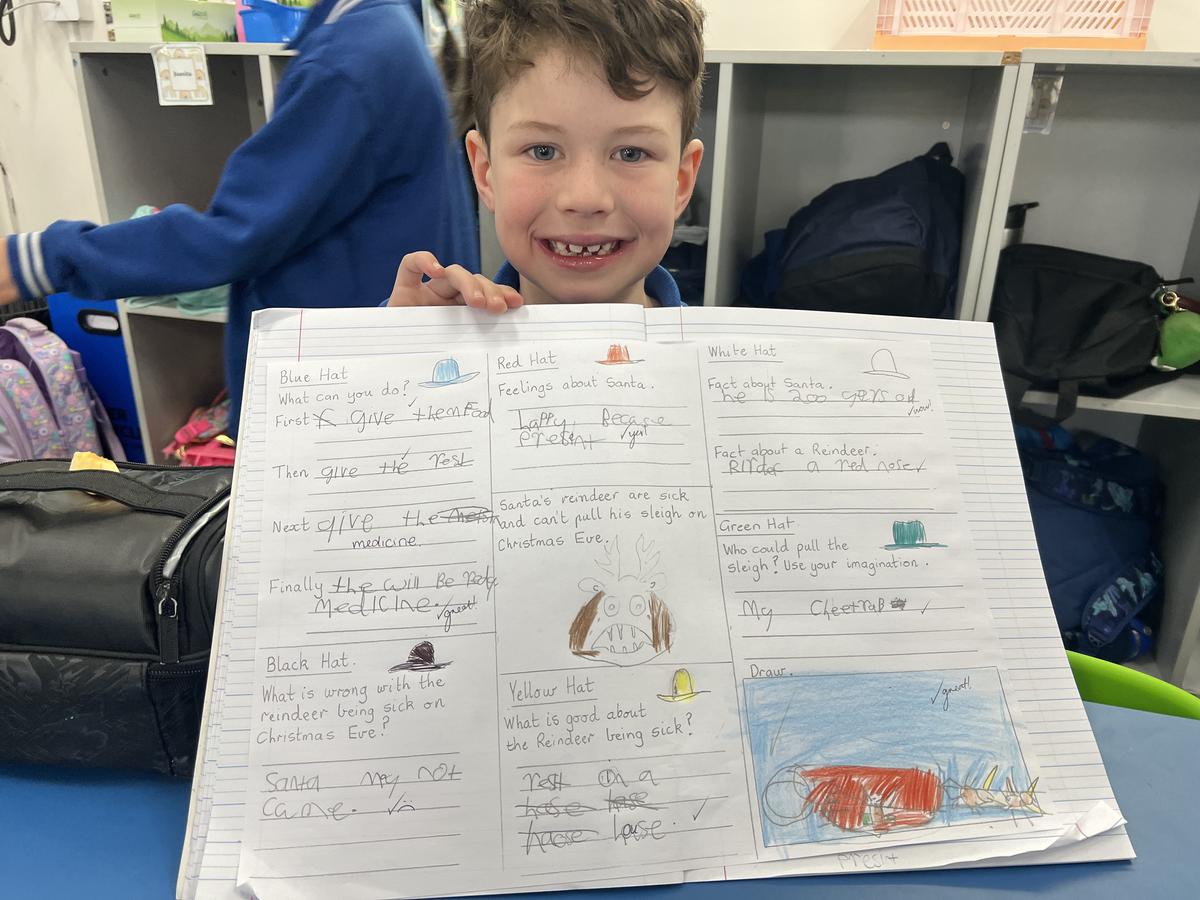 Blue Hat
What can you do?
First I give them Food
Then give the rest
Next give the
medicine.
Finally the will Be
MEDICINE. great!
Black Hat.
What is wrong with the
reindeer being sick on
Christmas Eve?
Santa may not
Came.
Red Hat
Feelings about Santa.
happy. Because
present yay!
Santa's reindeer are sick
and can't pull his sleigh on
Christmas Eve.
Yellow Hat
What is good about
the Reindeer being sick?
rest in a
house.
White Hat
Fact about Santa.
he is 200 yers old
wow!
Fact about a Reindeer.
a red nose
Green Hat
Who could pull the
sleigh? Use your imagination.
My
Draw.
great!